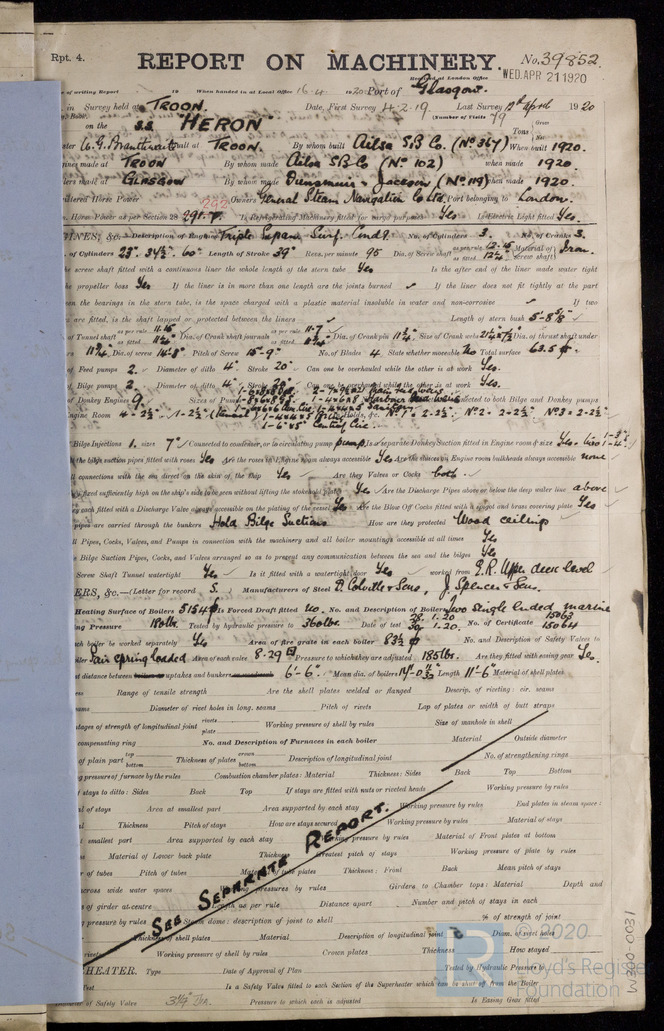 Rpt. 4.
REPORT ON MACHINERY. No. 39852
Received at London Office WED. APR 21 1920
of writing Report 19 When handed in at Local Office 16.4. 1920 Port of Glasgow
in Survey held at TROON. Date, First Survey 4-2-19 Last Survey 12th April 1920
(Number of Visits 79
on the S.S. "HERON" Tons Gross Net
built at TROON. By whom built Ailsa S.B. Co. (No 367) When built 1920.
ines made at TROON By whom made Ailsa S.B. Co (No 102) when made 1920.
lers made at GLASGOW By whom made Dunsmuir & Jackson (No 119) when made 1920.
istered Horse Power Owners General Steam Navigation Co Ltd. Port belonging to London.
Horse Power as per Section 28 291. Is Refrigerating Machinery fitted for cargo purposes Yes Is Electric Light fitted Yes.
GINES, &c.—Description of Engines Triple Expan. Surf. Cond. No. of Cylinders 3. No. of Cranks 3.
of Cylinders 23" 37½" 60" Length of Stroke 39" Revs. per minute 95 Dia. of Screw shaft as per rule 12.15 as fitted Material of screw shaft Iron.
he screw shaft fitted with a continuous liner the whole length of the stern tube Yes Is the after end of the liner made water tight
he propeller boss Yes If the liner is in more than one length are the joints burned ✓ If the liner does not fit tightly at the part
en the bearings in the stern tube, is the space charged with a plastic material insoluble in water and non-corrosive ✓ If two
are fitted, is the shaft lapped or protected between the liners ✓ Length of stern bush 5'-8⅝"
of Tunnel shaft as per rule 11.15 as fitted Dia. of Crank shaft journals as per rule 11.7 as fitted Dia. of Crank pin 11¾" Size of Crank webs Dia. of thrust shaft under
rs Dia. of screw 14'-8" Pitch of Screw 15'-9" No. of Blades 4 State whether moveable No Total surface 63.5 ▯'
of Feed pumps 2. Diameter of ditto 4" Stroke 20" Can one be overhauled while the other is at work Yes.
of Bilge pumps 2 Diameter of ditto 4" Stroke 20" Can one be overhauled while the other is at work Yes.
of Donkey Engines 9. Sizes of Pumps connected to both Bilge and Donkey pumps
Engine Room 4 - 2½" 1 - 2½" No 1 - 2 - 2½" No 2 - 2 - 2½" No 3 = 2 - 2½"
1 - 6" x 5" Centrif. Circ.
Bilge Injections 1. sizes 7" Connected to condenser, or to circulating pump pump Is a separate Donkey Suction fitted in Engine room & size Yes
the bilge suction pipes fitted with roses Yes Are the roses in Engine room always accessible Yes Are the sluices on Engine room bulkheads always accessible none
ll connections with the sea direct on the skin of the ship Yes Are they Valves or Cocks both
y fixed sufficiently high on the ship's side to be seen without lifting the stokehold plates Yes Are the Discharge Pipes above or below the deep water line above
ey each fitted with a Discharge Valve always accessible on the plating of the vessel Yes Are the Blow Off Cocks fitted with a spigot and brass covering plate Yes
pipes are carried through the bunkers Hold Bilge Suctions How are they protected Wood ceilings
ll Pipes, Cocks, Valves, and Pumps in connection with the machinery and all boiler mountings accessible at all times Yes
e Bilge Suction Pipes, Cocks, and Valves arranged so as to prevent any communication between the sea and the bilges Yes
Screw Shaft Tunnel watertight Yes Is it fitted with a watertight door Yes worked from E.R. Upper deck level
ERS, &c.—(Letter for record S.) Manufacturers of Steel D. Colville & Sons, J. Spencer & Sons.
Heating Surface of Boilers 5154 ▯' Is Forced Draft fitted No. No. and Description of Boilers Two single ended marine
ng Pressure 180 lbs. Tested by hydraulic pressure to 360 lbs. Date of test 28.1.20 30.1.20. No. of Certificate 15063 15064
ch boiler be worked separately Yes Area of fire grate in each boiler 83½ ▯' No. and Description of Safety Valves to
boiler Pair Spring loaded Area of each valve 8.29 ▯" Pressure to which they are adjusted 185 lbs. Are they fitted with easing gear Yes.
st distance between boilers or uptakes and bunkers or woodwork 6'-6". Mean dia. of boilers Length 11'-6" Material of shell plates
Range of tensile strength Are the shell plates welded or flanged Descrip. of riveting: cir. seams
ams Diameter of rivet holes in long. seams Pitch of rivets Lap of plates or width of butt straps
ntages of strength of longitudinal joint rivets plate Working pressure of shell by rules Size of manhole in shell
compensating ring No. and Description of Furnaces in each boiler Material Outside diameter
of plain part top bottom Thickness of plates crown bottom Description of longitudinal joint No. of strengthening rings
g pressure of furnace by the rules Combustion chamber plates: Material Thickness: Sides Back Top Bottom
f stays to ditto: Sides Back Top If stays are fitted with nuts or riveted heads Working pressure by rules
al of stays Area at smallest part Area supported by each stay Working pressure by rules End plates in steam space:
al Thickness Pitch of stays How are stays secured Working pressure by rules Material of stays
smallest part Area supported by each stay Working pressure by rules Material of Front plates at bottom
Material of Lower back plate Thickness Greatest pitch of stays Working pressure of plate by rules
er of tubes Pitch of tubes Material of tube plates Thickness: Front Back Mean pitch of stays
across wide water spaces Working pressures by rules Girders to Chamber tops: Material Depth and
ss of girder at centre Length as per rule Distance apart Number and pitch of stays in each
g pressure by rules Steam dome: description of joint to shell % of strength of joint
SEE SEPARATE REPORT.
Thickness of shell plates Material Description of longitudinal joint Diam. of rivet holes
rivets Working pressure of shell by rules Crown plates Thickness How stayed
HEATER. Type Date of Approval of Plan Tested by Hydraulic Pressure to
Test Is a Safety Valve fitted to each Section of the Superheater which can be shut off from the Boiler
of Safety Valve Pressure to which each is adjusted Is Easing Gear fitted
© 2020
Lloyd's Register
Foundation
W300-0031